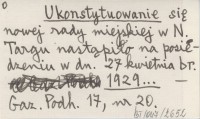 Ukonstytuowanie się
nowej rady miejskiej w N.
Targu nastąpiło na posie-
dzeniu w dn. 27 kwietnia br.
1929... —
Gaz. Podh. 17, nr 20.